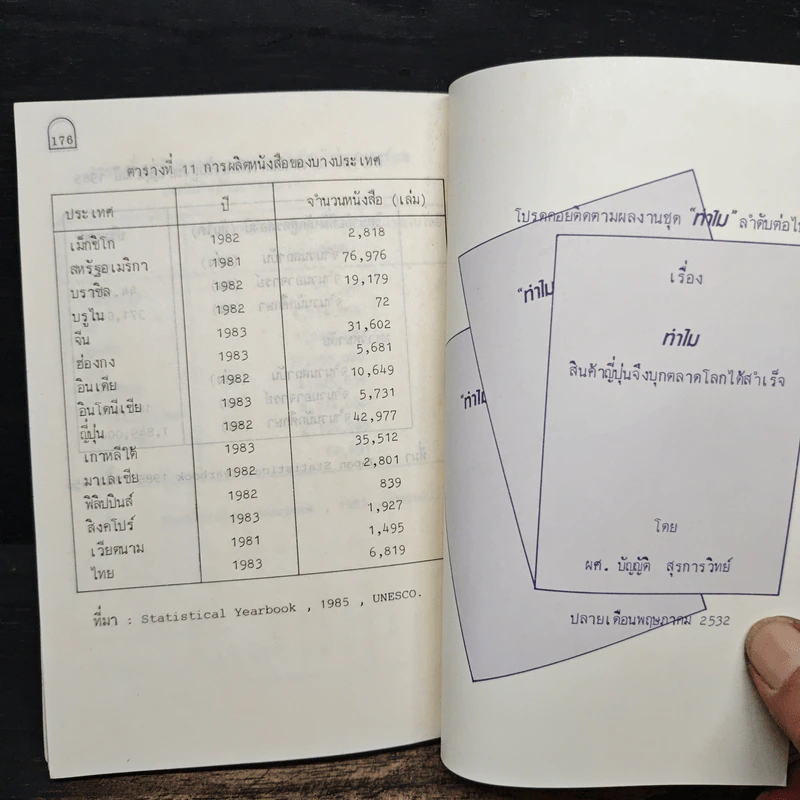 176
ตารางที่ 11 การผลิตหนังสือของบางประเทศ
ประเทศ ปี จำนวนหนังสือ (เล่ม)
เม็กซิโก 1982 2,818
สหรัฐอเมริกา 1981 76,976
บราซิล 1982 19,179
บรูไน 1982 72
จีน 1983 31,602
ฮ่องกง 1983 5,681
อินเดีย 1982 10,649
อินโดนีเซีย 1983 5,731
ญี่ปุ่น 1982 42,977
เกาหลีใต้ 1983 35,512
มาเลเซีย 1982 2,801
ฟิลิปปินส์ 1982 839
สิงคโปร์ 1983 1,927
เวียดนาม 1981 1,495
ไทย 1983 6,819
ที่มา : Statistical Yearbook , 1985 , UNESCO.
โปรดคอยติดตามผลงานชุด "ทำไม" ลำดับต่อไป
เรื่อง
"ทำไม
ทำไม
สินค้าญี่ปุ่นจึงบุกตลาดโลกได้สำเร็จ
"ทำไม
โดย
ผศ. บัญญัติ สุรการวิทย์
ปลายเดือนพฤษภาคม 2532